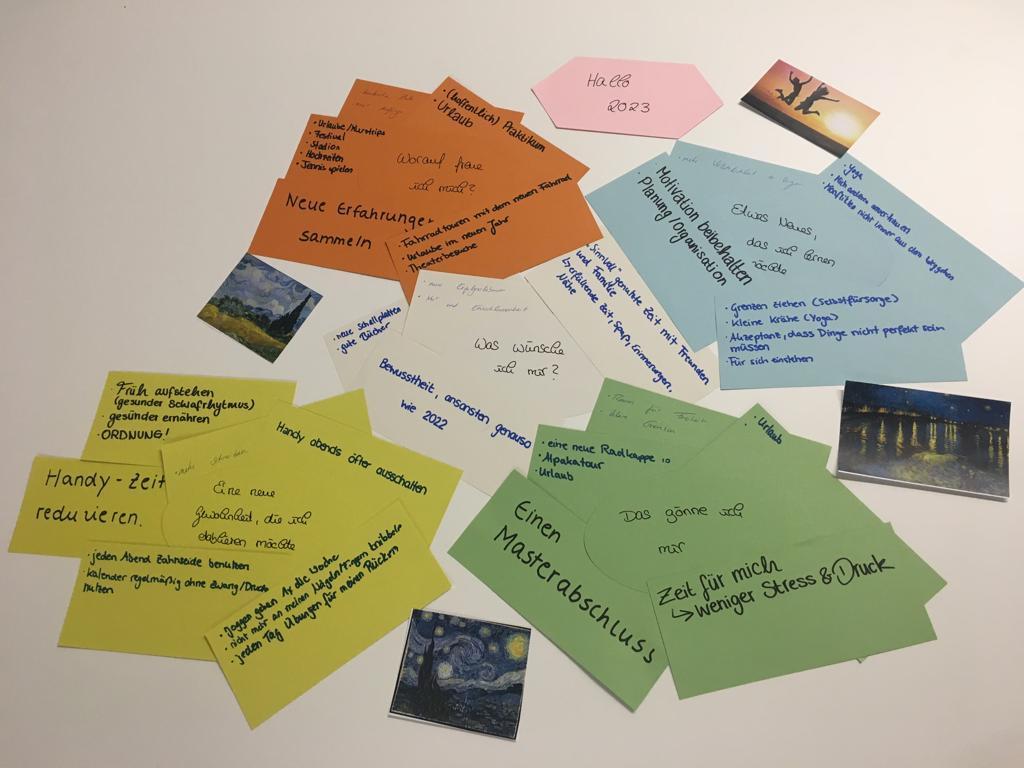 Hallo
2023
• (hoffentlich) Praktikum
• Urlaub
• Urlaube/Kurztrips
• Festival
• Stadion
• Hochzeiten
• Tennis spielen
Worauf freue
ich mich?
Neue Erfahrungen
sammeln
• Fahrradtouren mit dem neuen Fahrrad
• Urlaube im neuen Jahr
• Theaterbesuche
Motivation beibehalten
Planung/Organisation
Etwas Neues,
das ich lernen
möchte
• Yoga
• Mich anderen anvertrauen
• Konflikte nicht immer aus dem Weg gehen
• Grenzen ziehen (Selbstfürsorge)
• Kleine Krähe (Yoga)
• Akzeptanz, dass Dinge nicht perfekt sein
müssen
• Für sich einstehen
• neue Schallplatten
• gute Bücher
Was wünsche
ich mir?
Bewusstheit, ansonsten genauso
wie 2022
• "Sinnvoll" genutzte Zeit mit Freunden
und Familie
↳ erfüllende Zeit, Spaß, Erinnerungen,
Nähe
• Früh aufstehen
(gesunder Schlafrhythmus)
• gesünder ernähren
• ORDNUNG!
Handy abends öfter ausschalten
Handy-Zeit
reduzieren.
Eine neue
Gewohnheit, die ich
etablieren möchte
• jeden Abend Zahnseide benutzen
• Kalender regelmäßig ohne Zwang/Druck
nutzen
• Joggen gehen 1x die Woche
• nicht mehr an meinen Nägeln/Fingern knibbeln
• jeden Tag Übungen für meinen Rücken
• Urlaub
• eine neue Radkappe
• Alpakatour
• Urlaub
Das gönne ich
mir
Einen
Masterabschluss
Zeit für mich
↳ weniger Stress & Druck